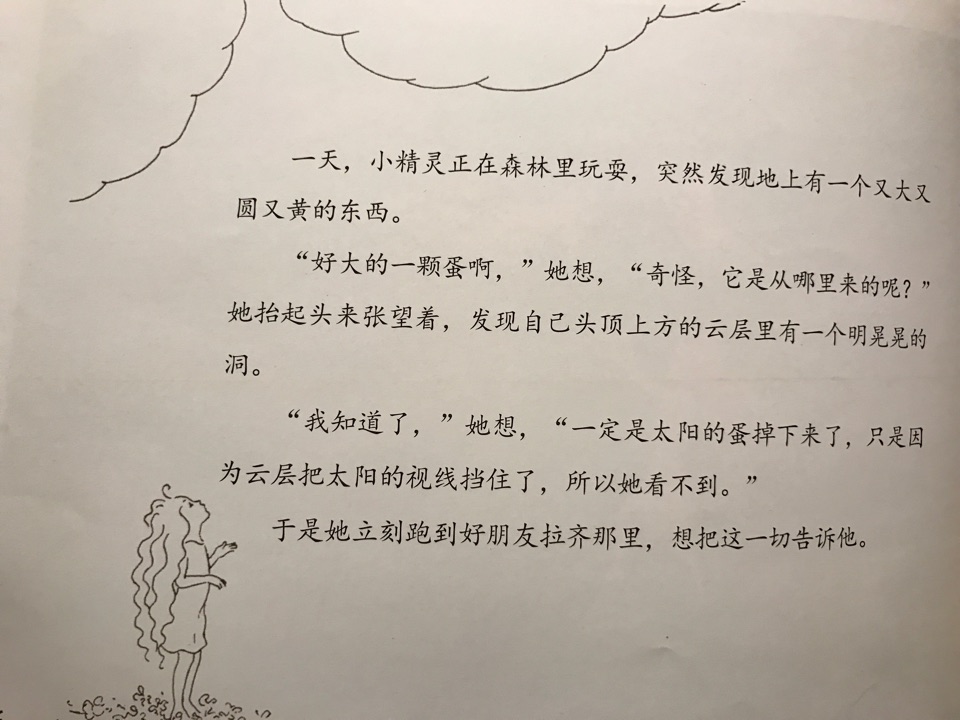 一天，小精灵正在森林里玩耍，突然发现地上有一个又大又
圆又黄的东西。
“好大的一颗蛋啊，”她想，“奇怪，它是从哪里来的呢？”
她抬起头来张望着，发现自己头顶上方的云层里有一个明晃晃的
洞。
“我知道了，”她想，“一定是太阳的蛋掉下来了，只是因
为云层把太阳的视线挡住了，所以她看不到。”
于是她立刻跑到好朋友拉齐那里，想把这一切告诉他。